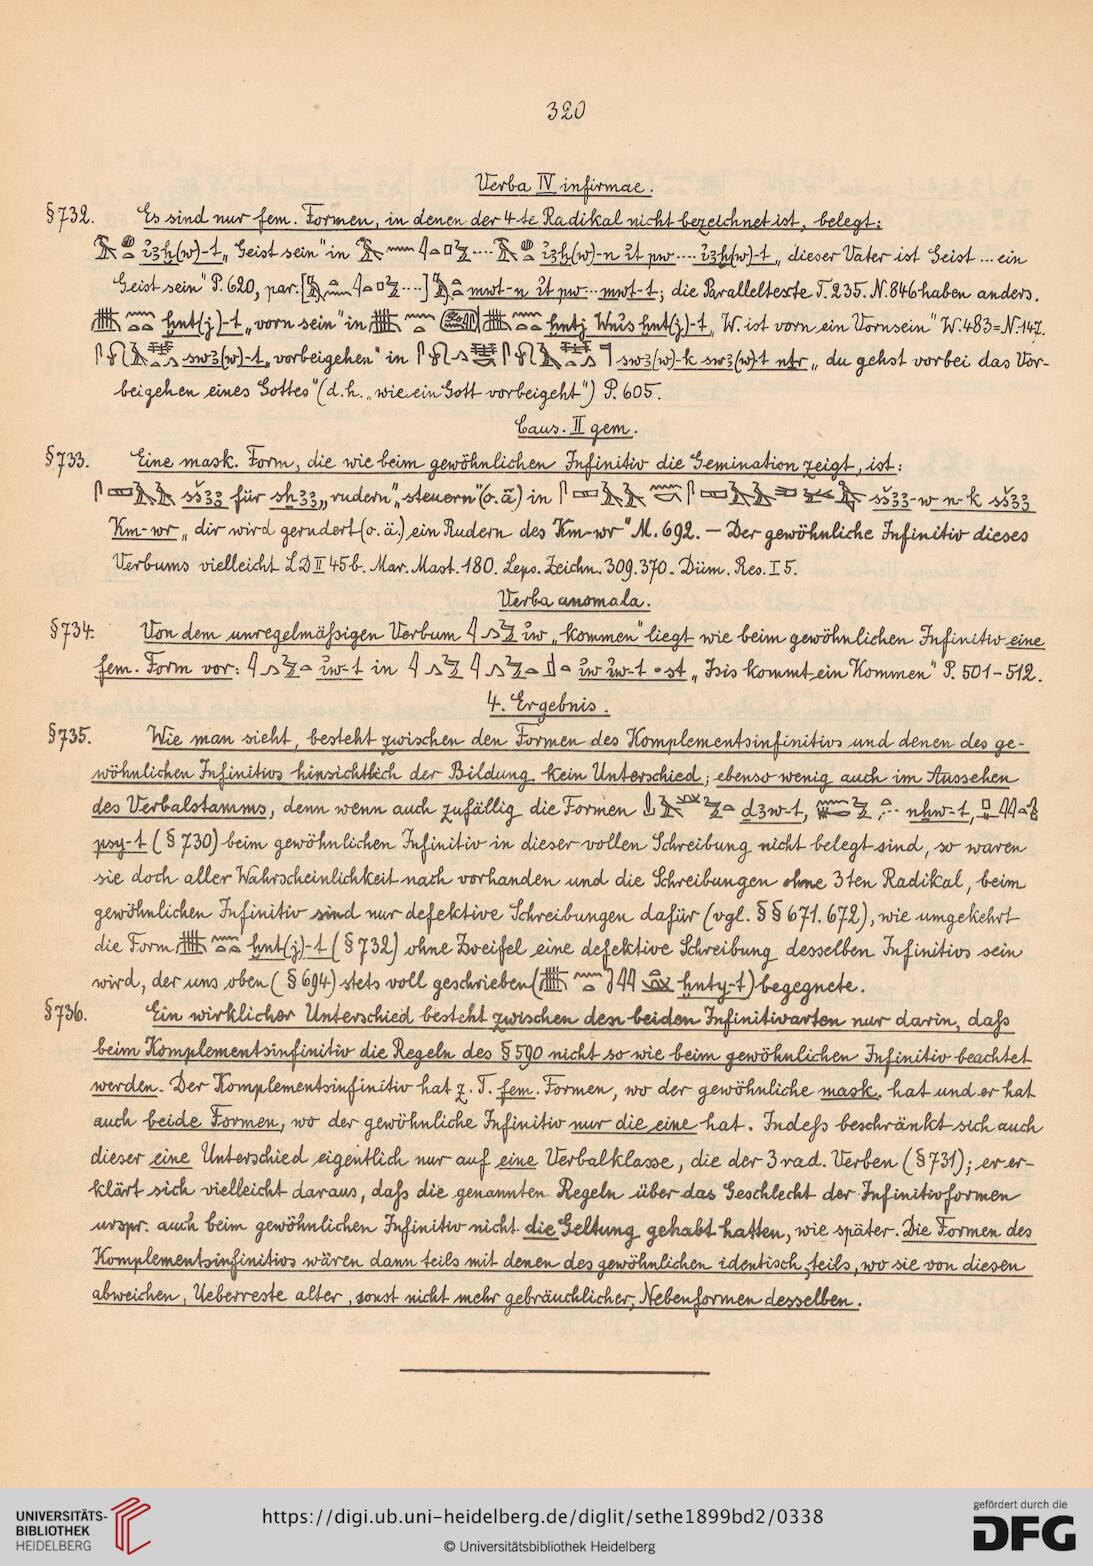 320
Verba IV infirmae.
§732. Es sind nur fem. Formen, in denen der 4-te Radikal nicht bezeichnet ist, belegt:
ỉ3ḫ(w)-t „Geist sein" in ỉ3ḫ(w)-n ỉt pw .... ỉ3ḫ(w)-t „dieser Vater ist Geist ... ein
Geist sein" P. 620, par. [....] mwt-n ỉt pw ... mwt-t; die Paralleltexte T. 235. N. 846 haben anders.
ḫnt(j)-t „vorn sein" in ḫntj Wnỉs ḫnt(j)-t „W. ist vorn ein Vornsein" W. 483 = N. 147.
sw3(w)-t „vorbeigehen" in sw3(w)-k sw3(w)-t nṯr „du gehst vorbei das Vor-
beigehen eines Gottes" (d.h. „wie ein Gott vorbeigeht") P. 605.
Caus. II gem.
§733. Eine mask. Form, die wie beim gewöhnlichen Infinitiv die Gemination zeigt, ist:
sš33 für sẖ33 „rudern" „steuern" (o. ä) in sš33-w n-k sš33
Km-wr „dir wird gerudert (o. ä.) ein Rudern des Km-wr" M. 692. – Der gewöhnliche Infinitiv dieses
Verbums vielleicht LD II 45b. Mar. Mast. 180. Leps. Zeichn. 309. 370. Düm. Res. I 5.
Verba anomala.
§734. Von dem unregelmäßigen Verbum ỉw „kommen" liegt wie beim gewöhnlichen Infinitiv eine
fem. Form vor: ỉw-t in ỉw ỉw-t st „Isis kommt ein Kommen" P. 501–512.
4. Ergebnis.
§735. Wie man sieht, besteht zwischen den Formen des Komplementsinfinitivs und denen des ge-
wöhnlichen Infinitivs hinsichtlich der Bildung kein Unterschied; ebenso wenig auch im Aussehen
des Verbalstamms, denn wenn auch zufällig die Formen d3w-t, nhw-t,
psy-t (§730) beim gewöhnlichen Infinitiv in dieser vollen Schreibung nicht belegt sind, so waren
sie doch aller Wahrscheinlichkeit nach vorhanden und die Schreibungen ohne 3ten Radikal, beim
gewöhnlichen Infinitiv sind nur defektive Schreibungen dafür (vgl. §§671. 672), wie umgekehrt
die Form ḫnt(j)-t (§732) ohne Zweifel eine defektive Schreibung desselben Infinitivs sein
wird, der uns oben (§694) stets voll geschrieben (ḫnty-t) begegnete.
§736. Ein wirklicher Unterschied besteht zwischen den beiden Infinitivarten nur darin, daß
beim Komplementsinfinitiv die Regeln des §590 nicht so wie beim gewöhnlichen Infinitiv beachtet
werden. Der Komplementsinfinitiv hat z. T. fem. Formen, wo der gewöhnliche mask. hat und er hat
auch beide Formen, wo der gewöhnliche Infinitiv nur die eine hat. Indeß beschränkt sich auch
dieser eine Unterschied eigentlich nur auf eine Verbalklasse, die der 3 rad. Verben (§731); er er-
klärt sich vielleicht daraus, daß die genannten Regeln über das Geschlecht der Infinitivformen
urspr. auch beim gewöhnlichen Infinitiv nicht die Geltung gehabt hatten, wie später. Die Formen des
Komplementsinfinitivs wären dann teils mit denen des gewöhnlichen identisch, teils, wo sie von diesen
abweichen, Ueberreste alter, sonst nicht mehr gebräuchlicher, Nebenformen desselben.
UNIVERSITÄTS-
BIBLIOTHEK
HEIDELBERG
https://digi.ub.uni-heidelberg.de/diglit/sethe1899bd2/0338
© Universitätsbibliothek Heidelberg
gefördert durch die
DFG